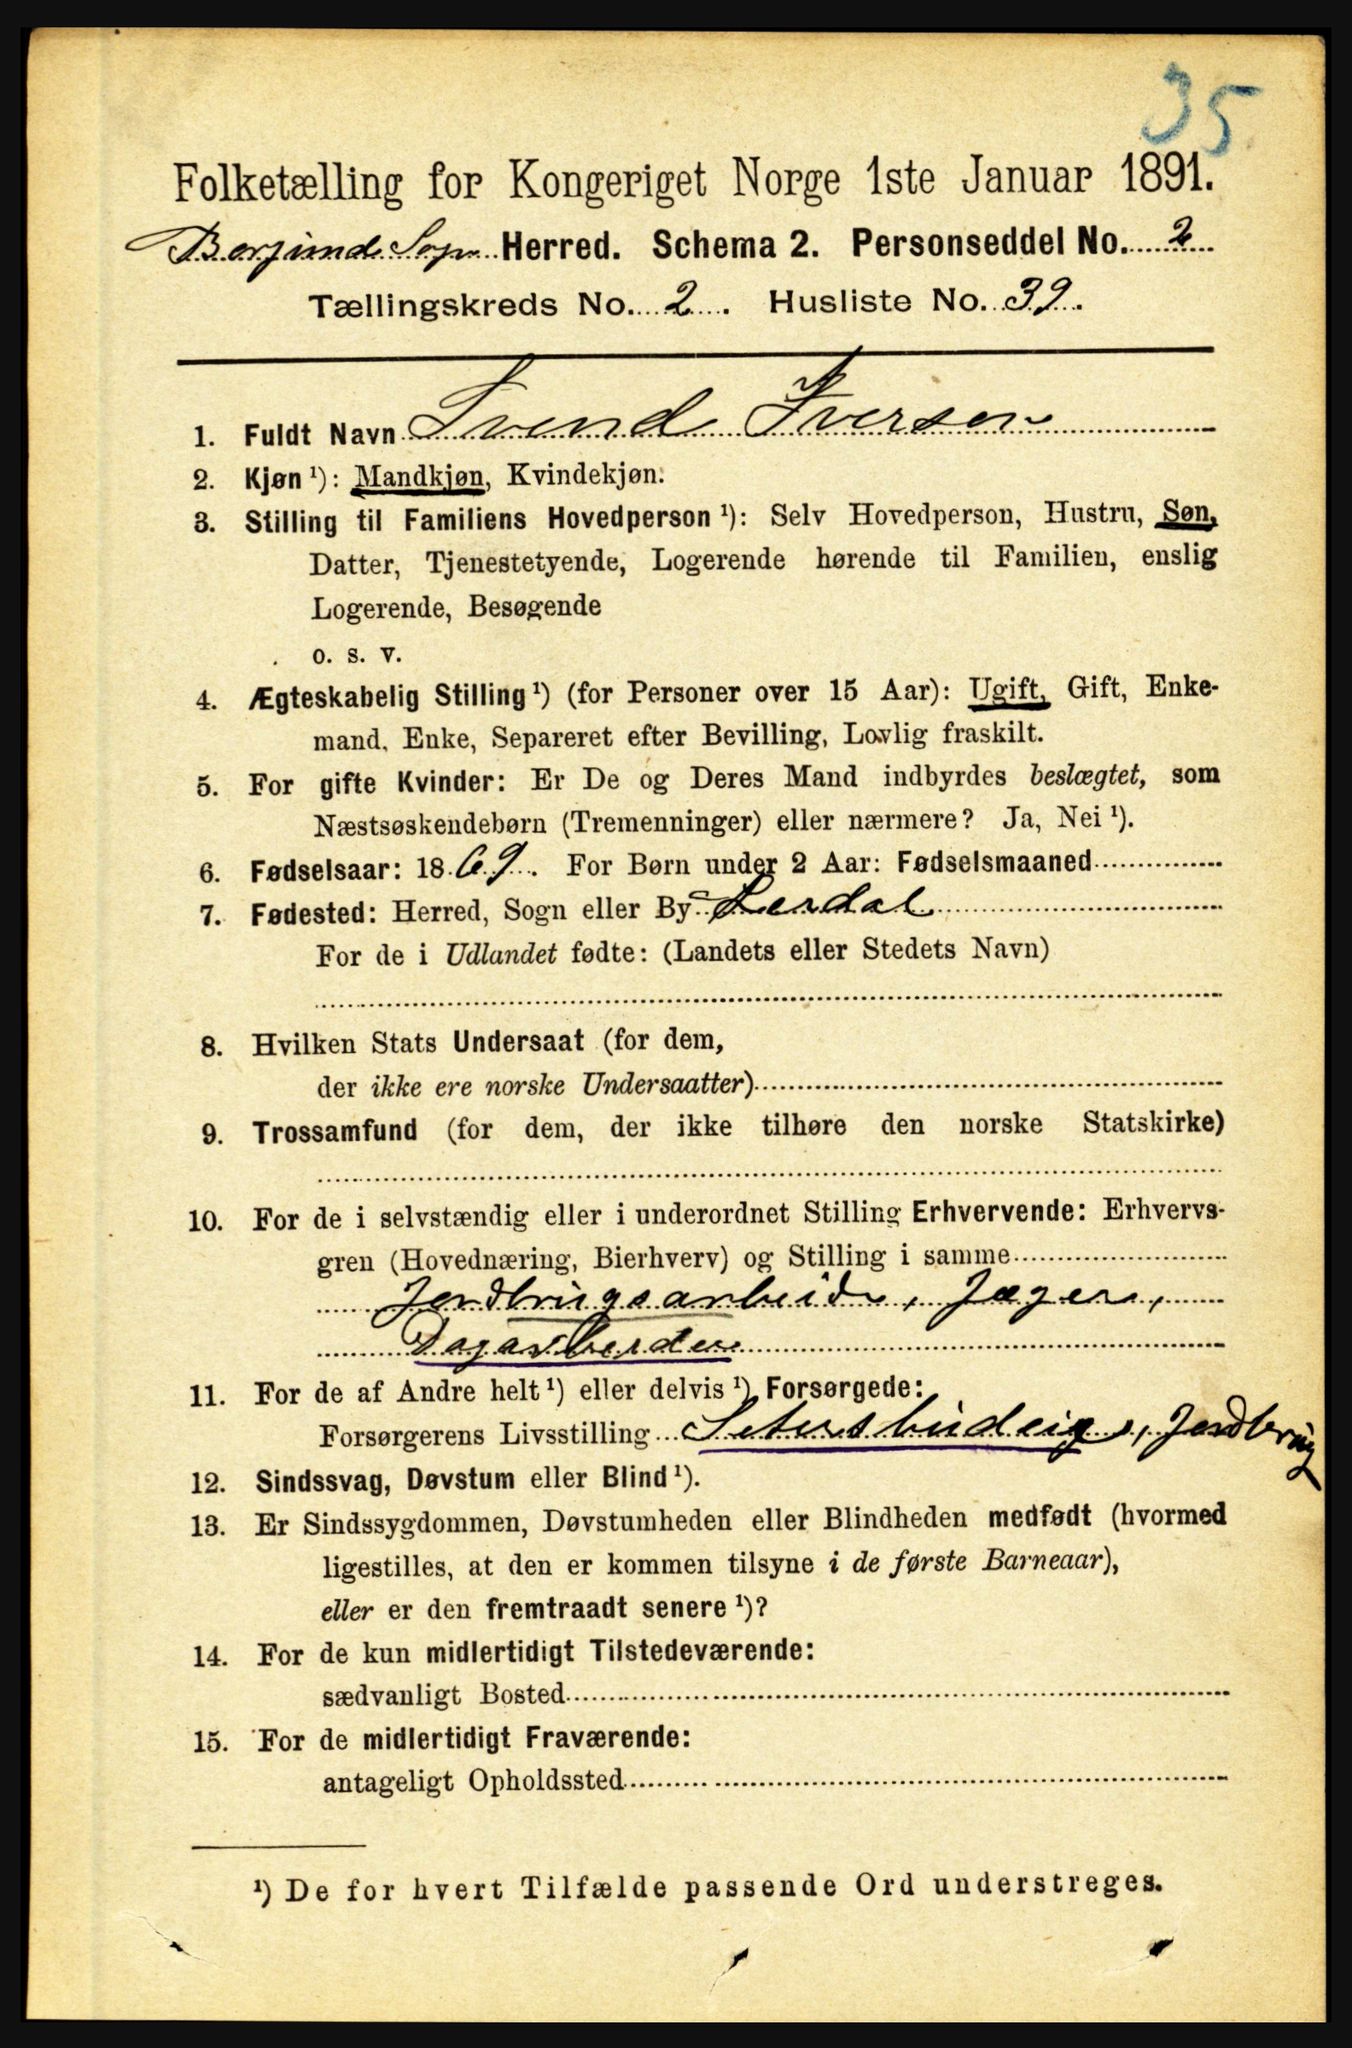 35
Folketælling for Kongeriget Norge 1ste Januar 1891.
Borgund Sogn Herred. Schema 2. Personseddel No. 2
Tællingskreds No. 2. Husliste No. 39.
1. Fuldt Navn Svend Iversen
2. Kjøn ¹): Mandkjøn, Kvindekjøn.
3. Stilling til Familiens Hovedperson ¹): Selv Hovedperson, Hustru, Søn,
Datter, Tjenestetyende, Logerende hørende til Familien, enslig
Logerende, Besøgende
o. s. v.
4. Ægteskabelig Stilling ¹) (for Personer over 15 Aar): Ugift, Gift, Enke-
mand, Enke, Separeret efter Bevilling, Lovlig fraskilt.
5. For gifte Kvinder: Er De og Deres Mand indbyrdes beslægtet, som
Næstsøskendebørn (Tremenninger) eller nærmere? Ja, Nei ¹).
6. Fødselsaar: 1869. For Børn under 2 Aar: Fødselsmaaned
7. Fødested: Herred, Sogn eller By Lerdal
For de i Udlandet fødte: (Landets eller Stedets Navn)
8. Hvilken Stats Undersaat (for dem,
der ikke ere norske Undersaatter)
9. Trossamfund (for dem, der ikke tilhøre den norske Statskirke)
10. For de i selvstændig eller i underordnet Stilling Erhvervende: Erhvervs-
gren (Hovednæring, Bierhverv) og Stilling i samme
Jordbrugsarbeide, Jæger,
Dagarbeider
11. For de af Andre helt ¹) eller delvis ¹) Forsørgede:
Forsørgerens Livsstilling , Jordbrug
12. Sindssvag, Døvstum eller Blind ¹).
13. Er Sindssygdommen, Døvstumheden eller Blindheden medfødt (hvormed
ligestilles, at den er kommen tilsyne i de første Barneaar),
eller er den fremtraadt senere ¹)?
14. For de kun midlertidigt Tilstedeværende:
sædvanligt Bosted
15. For de midlertidigt Fraværende:
antageligt Opholdssted
¹) De for hvert Tilfælde passende Ord understreges.